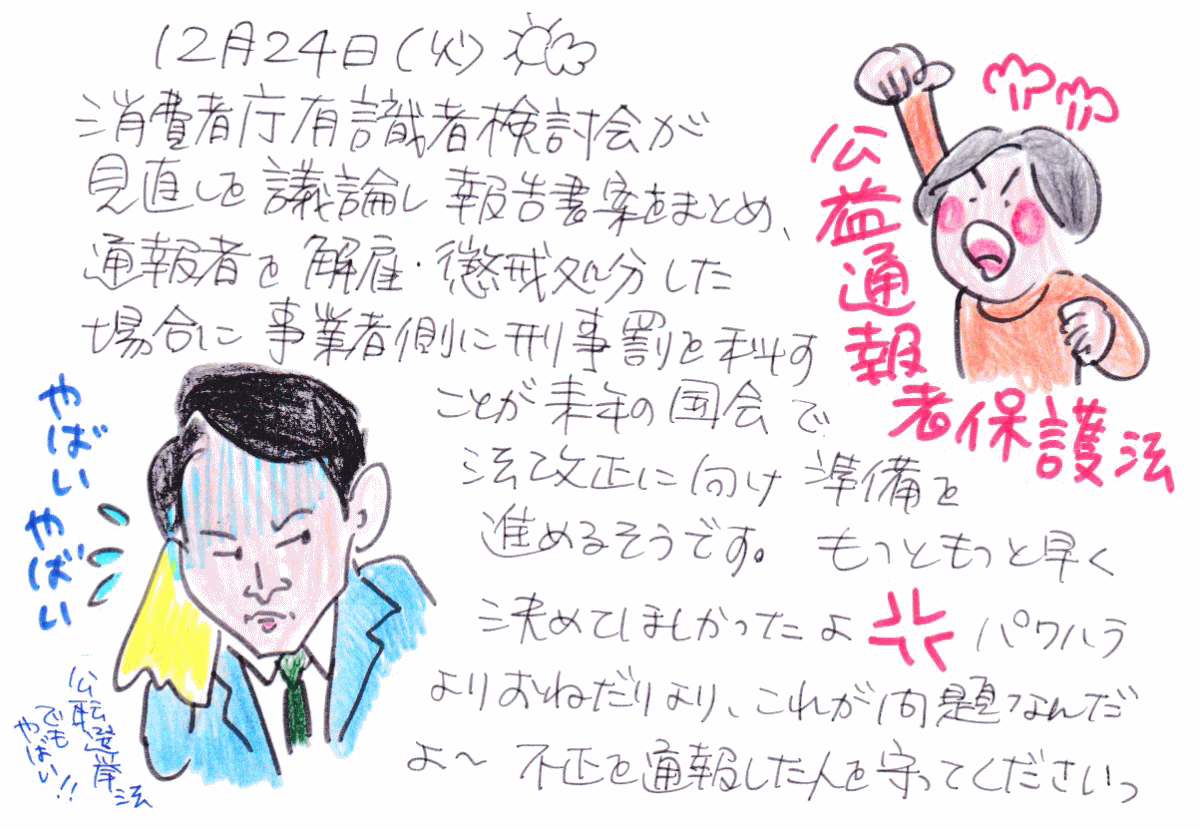 12月24日(火)
消費者庁有識者検討会が
見直しを議論し報告書案をまとめ、
通報者を解雇・懲戒処分した
場合に事業者側に刑事罰を科す
ことが来年の国会で
法改正に向け準備を
進めるそうです。もっともっと早く
決めてほしかったよ パワハラ
よりおねだりより、これが問題なんだ
よ〜 不正を通報した人を守ってくださいっ
公益通報者保護法
やばい
やばい
公転選挙法
でも
やばい!!